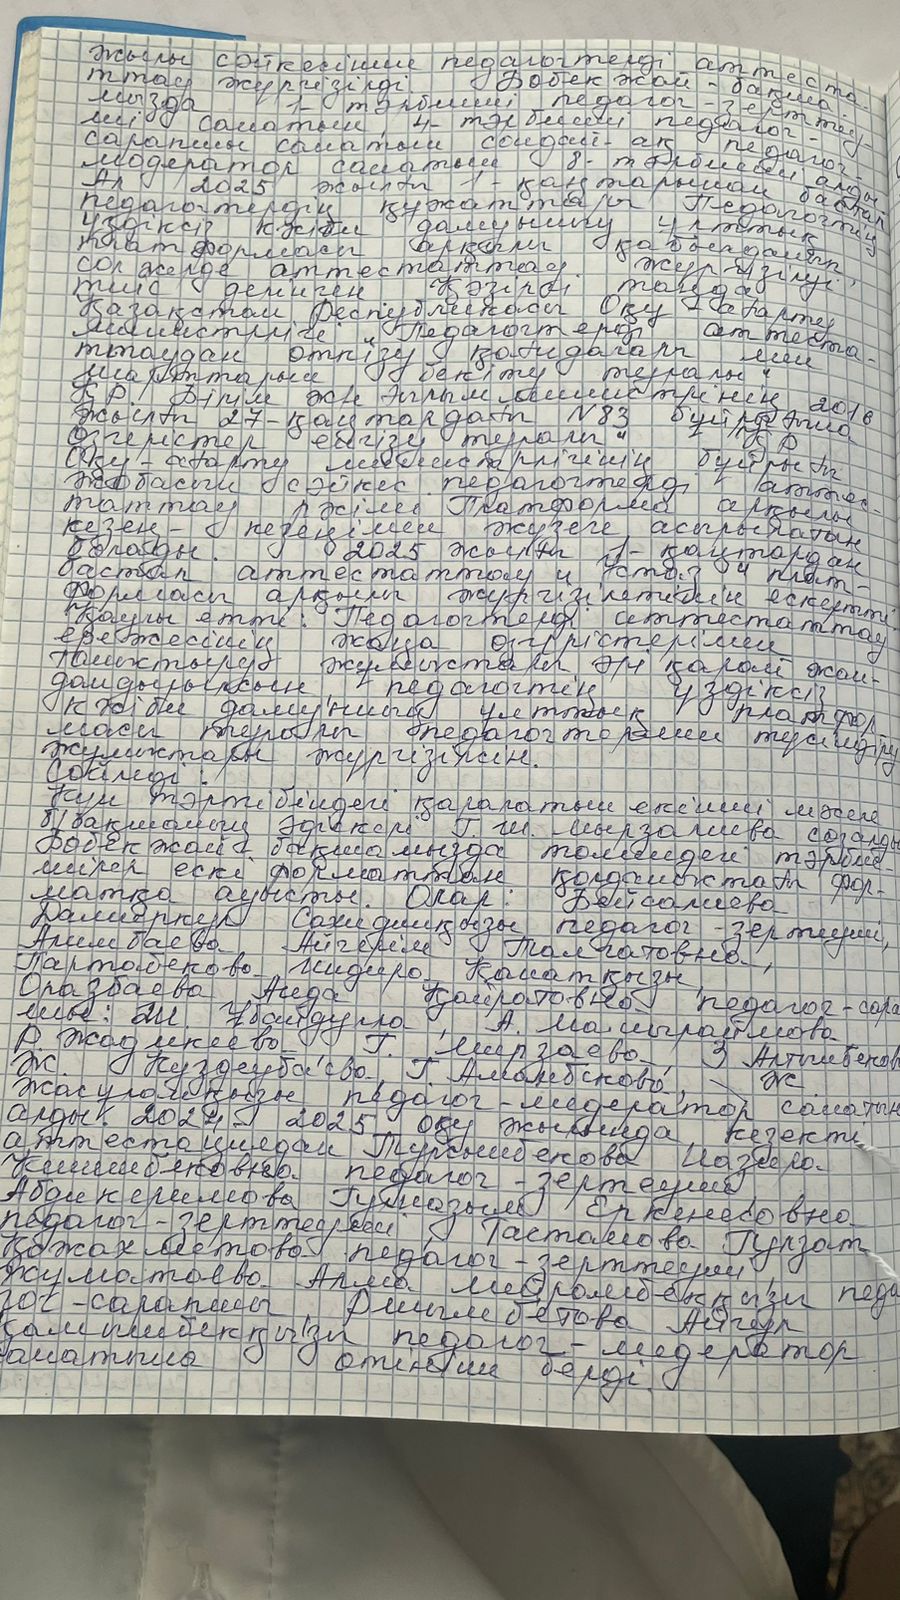 жылы сәйкесінше педагогтерді аттеста-
ттау жүргізілді. Бөбекжай-бақша-
мызда 1-тәрбиеші педагог-зерттеу-
ші санатын, 4-тәрбиеші педагог-
сарапшы санатын сондай-ақ педагог-
модератор санатын 8-тәрбиеші алды
Ал 2025 жылғы 1-қаңтарынан бастап
педагогтердің құжаттары Педагогтің
үздіксіз кәсіби дамуының ұлттық
платформасы арқылы қабылданып
сол жерде аттестаттау жүргізілуі
тиіс делінген Қазіргі таңда
Қазақстан Республикасы Оқу-ағарту
министрлігі „Педагогтерді аттеста-
ттаудан өткізу қағидалары мен
шарттарын бекіту туралы"
ҚР Білім және Ғылым министрінің 2016
жылғы 27-қаңтардағы N83 бұйрығына
өзгерістер енгізу туралы" ҚР
Оқу-ағарту министрлігінің бұйрығы
жобасына сәйкес педагогтерді аттес-
таттау рәсімі Платформа арқылы
кезең-кезеңімен жүзеге асырылатын
болады. 2025 жылғы 1-қаңтардан
бастап аттестаттау „Ұстаз" плат-
формасы арқылы жүргізілетінін ескертті
Қаулы етті: Педагогтерді аттестаттау
ережесінің жаңа өзгерістерімен
таныстыру жұмыстары әрі қарай жан-
дандырылсын педагогтің үздіксіз
кәсіби дамуының ұлттық платфор
масы туралы педагогтармен түсіндіру
жұмыстары жүргізілсін.
Сөйледі:
Күн тәртібіндегі қаралатын екінші мәселе
б/бақшаның әдіскері Г.Ш. Мырзалиева сөз алды
Бөбекжай бақшамызда төмендегі тәрбие-
шілер ескі форматтан қолданыстағы фор-
матқа ауысты. Олар: Бейсалиева
Сахидинқызы педагог-зерттеуші,
Алимбаева Айгерім Талгатовна,
Партобекова Индира Қанатқызы,
Оразбаева Аида Қайратовна педагог-сара
пшы: Ш. Убайдулла, А. Машырапова
Р. Жадикеева Г. Мирзаева З Алтынбекова
Ж. Куздеубаева Г Аманбекова, Ж
Жасуланқызы педагог-модератор санатын
алды. 2024-2025 оқу жылында кезекті
аттестациядан Турсынбекова Назира
педагог-зерттеуші
Абдикеримова Гулназым Еркенесовна
педагог-зерттеуші Тастанова Гулзат
Қожахметовна педагог-зерттеуші,
Жуматаева Алма педа
гог-сарапшы Рысымбетова Айгул
Қамышбекқызы педагог-модератор
санатына өтініш берді.